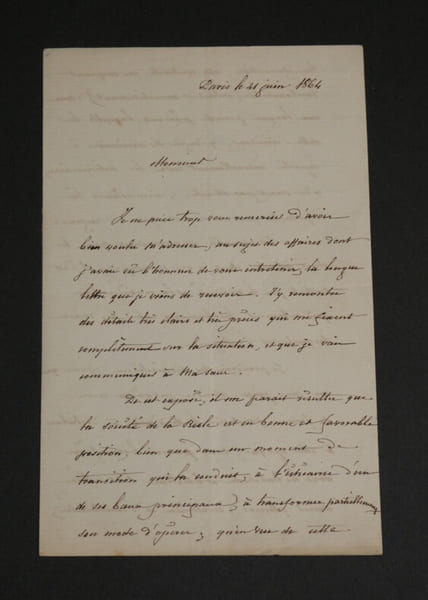 Paris le 21 juin 1864
Monsieur
Je ne puis trop vous remercier d'avoir
bien voulu m'adresser, au sujet des affaires dont
j'avais eu l'honneur de vous entretenir, la longue
lettre que je viens de recevoir. J'y rencontre
des détails très clairs et très précis qui me fixent
complètement sur la situation, et que je vais
communiquer à Ma sœur.
De cet exposé, il me paraît résulter que
la société de la est en bonne et favorable
position, bien que dans un moment de
transition qui la conduit, à d'un
de ses baux principaux, à transformer partiellement
son mode d'opérer; qu'en vue de cette